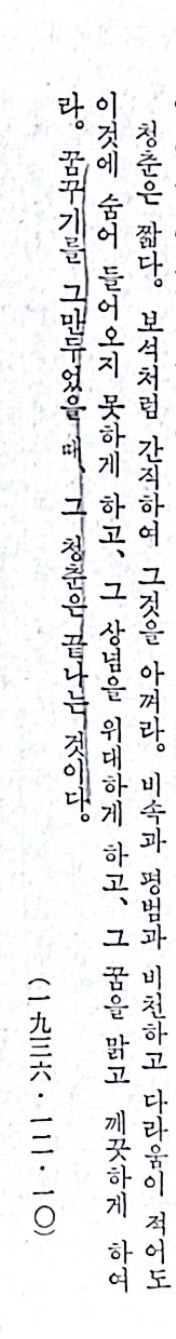 청춘은 짧다。 보석처럼 간직하여 그것을 아껴라。 비속과 평범과 비천하고 다라움이 적어도
이것에 숨어 들어오지 못하게 하고、 그 상념을 위대하게 하고、 그 꿈을 맑고 깨끗하게 하여
라。 꿈꾸기를 그만두었을 때、 그 청춘은 끝나는 것이다。
(一九三六・一二・一〇)